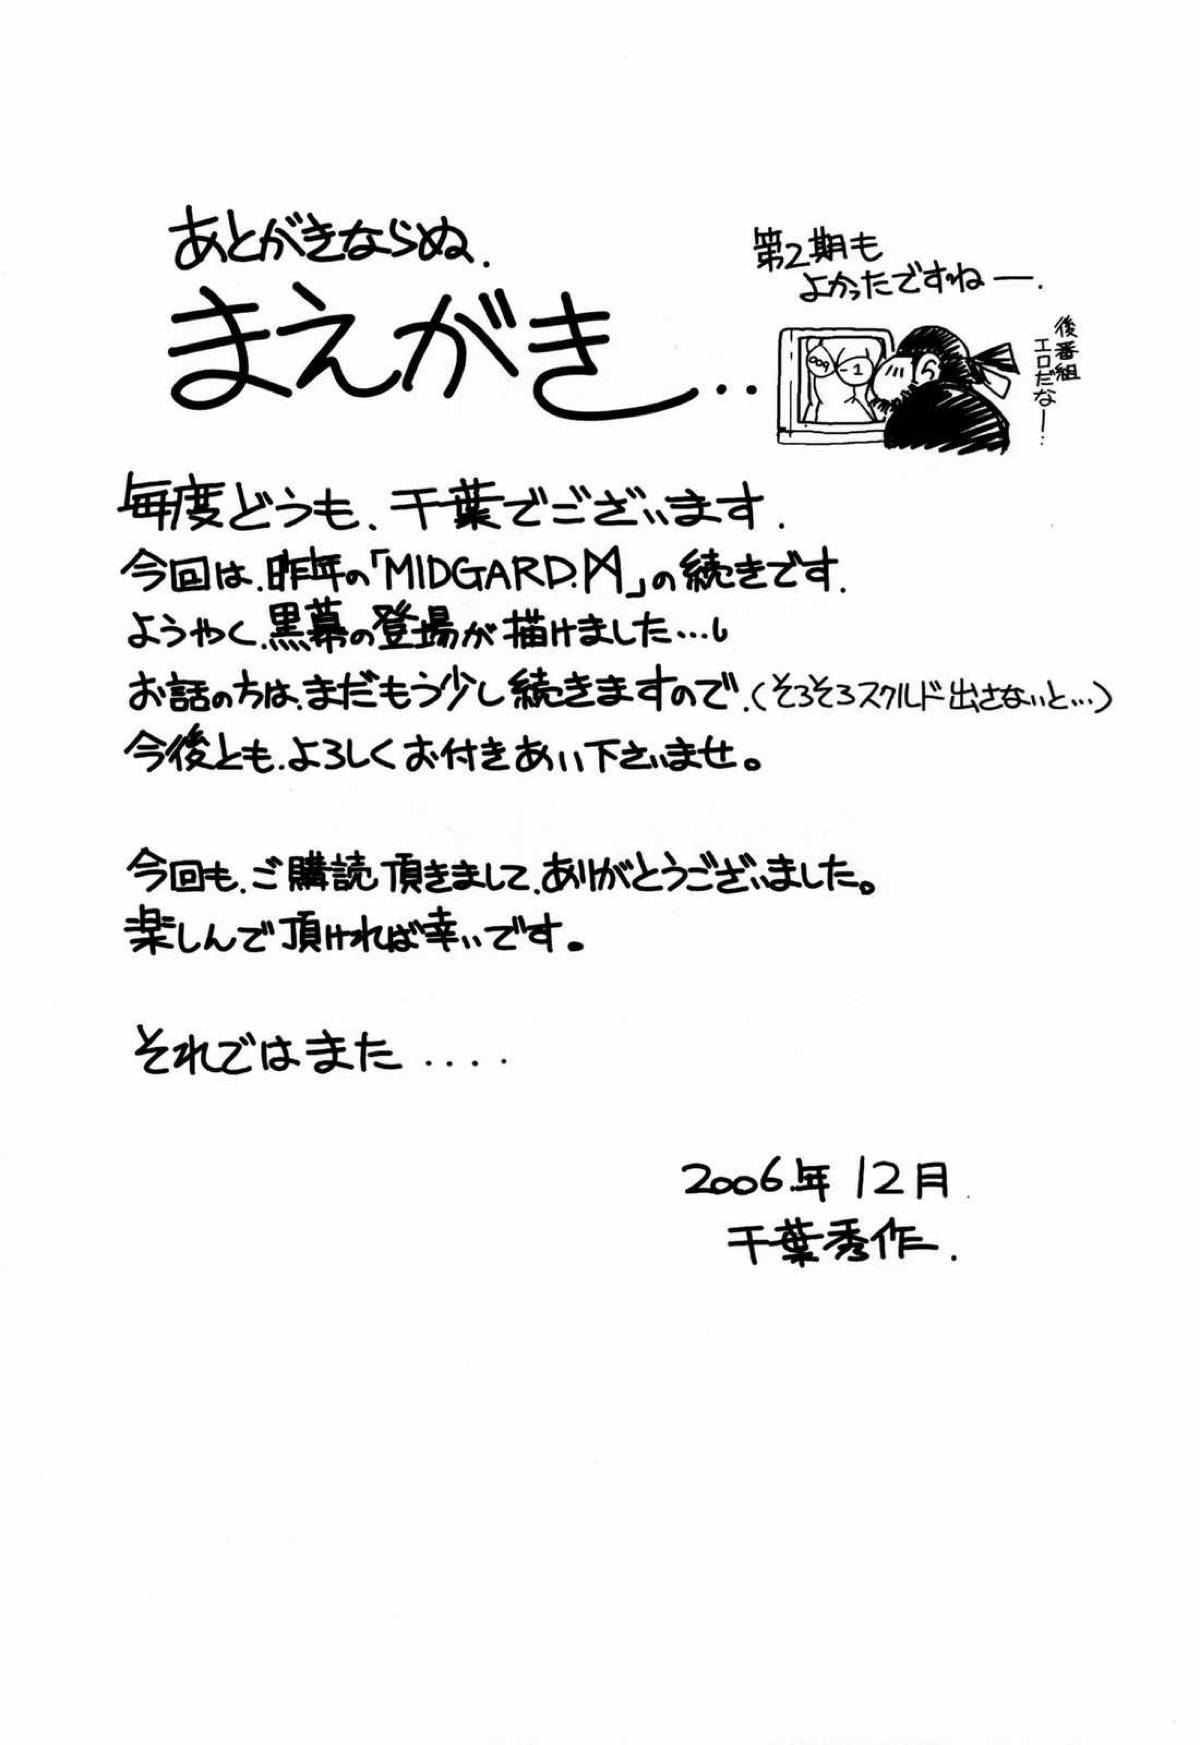 あとがきならぬ.
まえがき...
第2期も
よかったですねー.
後番組
エロだなー...
009
-1
毎度どうも、千葉でございます.
今回は、昨年の「MIDGARD.M」の続きです.
ようやく、黒幕の登場が描けました…し
お話の方は、まだもう少し続きますので、(そろそろスクルド出さないと…)
今後とも、よろしくお付きあい下さいませ。
今回も、ご購読頂きまして、ありがとうございました。
楽しんで頂ければ幸いです。
それではまた ....
2006年 12月
千葉秀作.